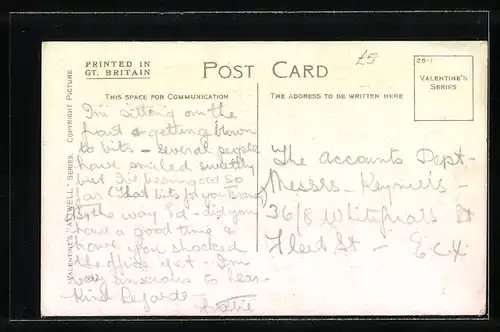 PRINTED IN
GT. BRITAIN
POST CARD
£5
25-1
VALENTINE'S
SERIES
THIS SPACE FOR COMMUNICATION
THE ADDRESS TO BE WRITTEN HERE
VALENTINE'S "ATTWELL" SERIES. COPYRIGHT PICTURE
I'm sitting on the
front & getting blown
to bits - several people
have smiled sweetly
but I've been good so
far (That bits for you
By the way Ed - did you
have a good time &
have you shocked
the office yet - I'm
very anxious to hear
Kind Regards
The Accounts Dept -
Messrs - Keymer's -
36/8 Whitefriars St
Fleet St - EC4